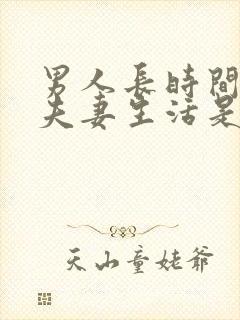 男人長時間
夫妻生活是
天山童姥爺